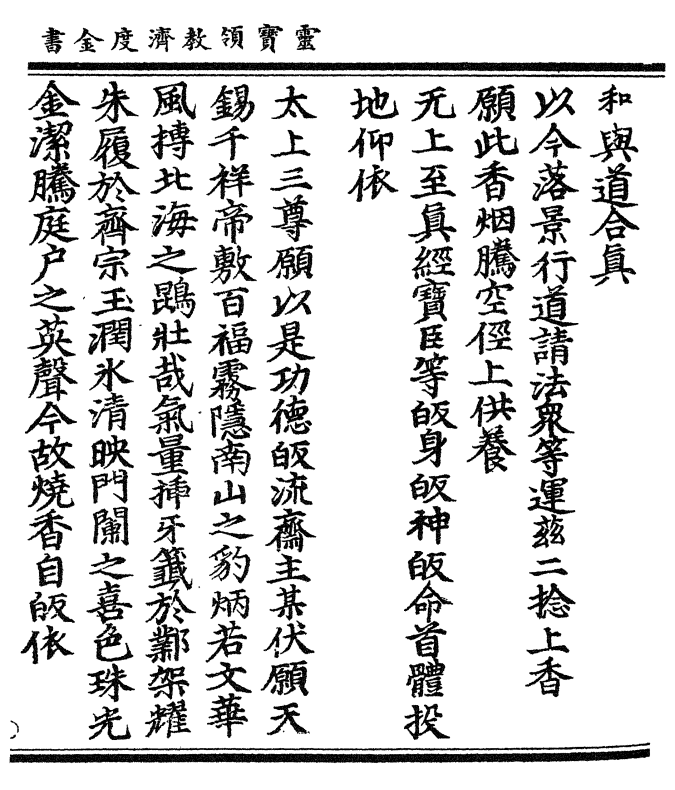 靈寶領教濟度金書
和與道合眞
以今落景行道請法眾等運兹二捻上香
願此香烟騰空徑上供養
无上至眞經寶臣等皈身皈神皈命首體投
地仰依
太上三尊願以是功德皈流齋主某伏願天
錫千祥帝敷百福霧隱南山之豹炳若文華
風摶北海之鵾壯哉氣量揷牙籤於鄴架耀
朱履於齊宗玉潤氷清映門闌之喜色珠光
金潔騰庭户之英聲今故燒香自皈依